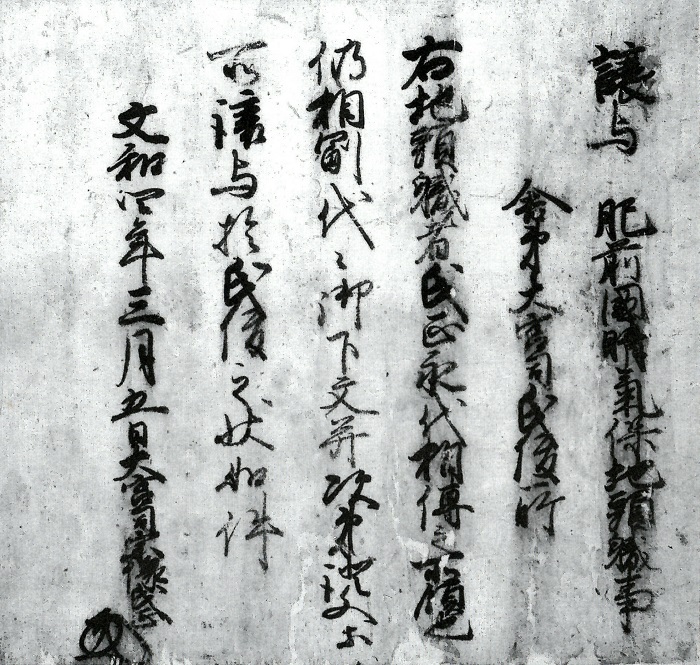 譲与　肥前國晴氣保地頭職事
舎弟大宮司氏俊所
右地頭職者氏正永代相傳之所領也
仍相副代ゝ御下文并次第證文等
所譲与於氏俊之状如件
文和四年三月五日大宮司宗像氏正